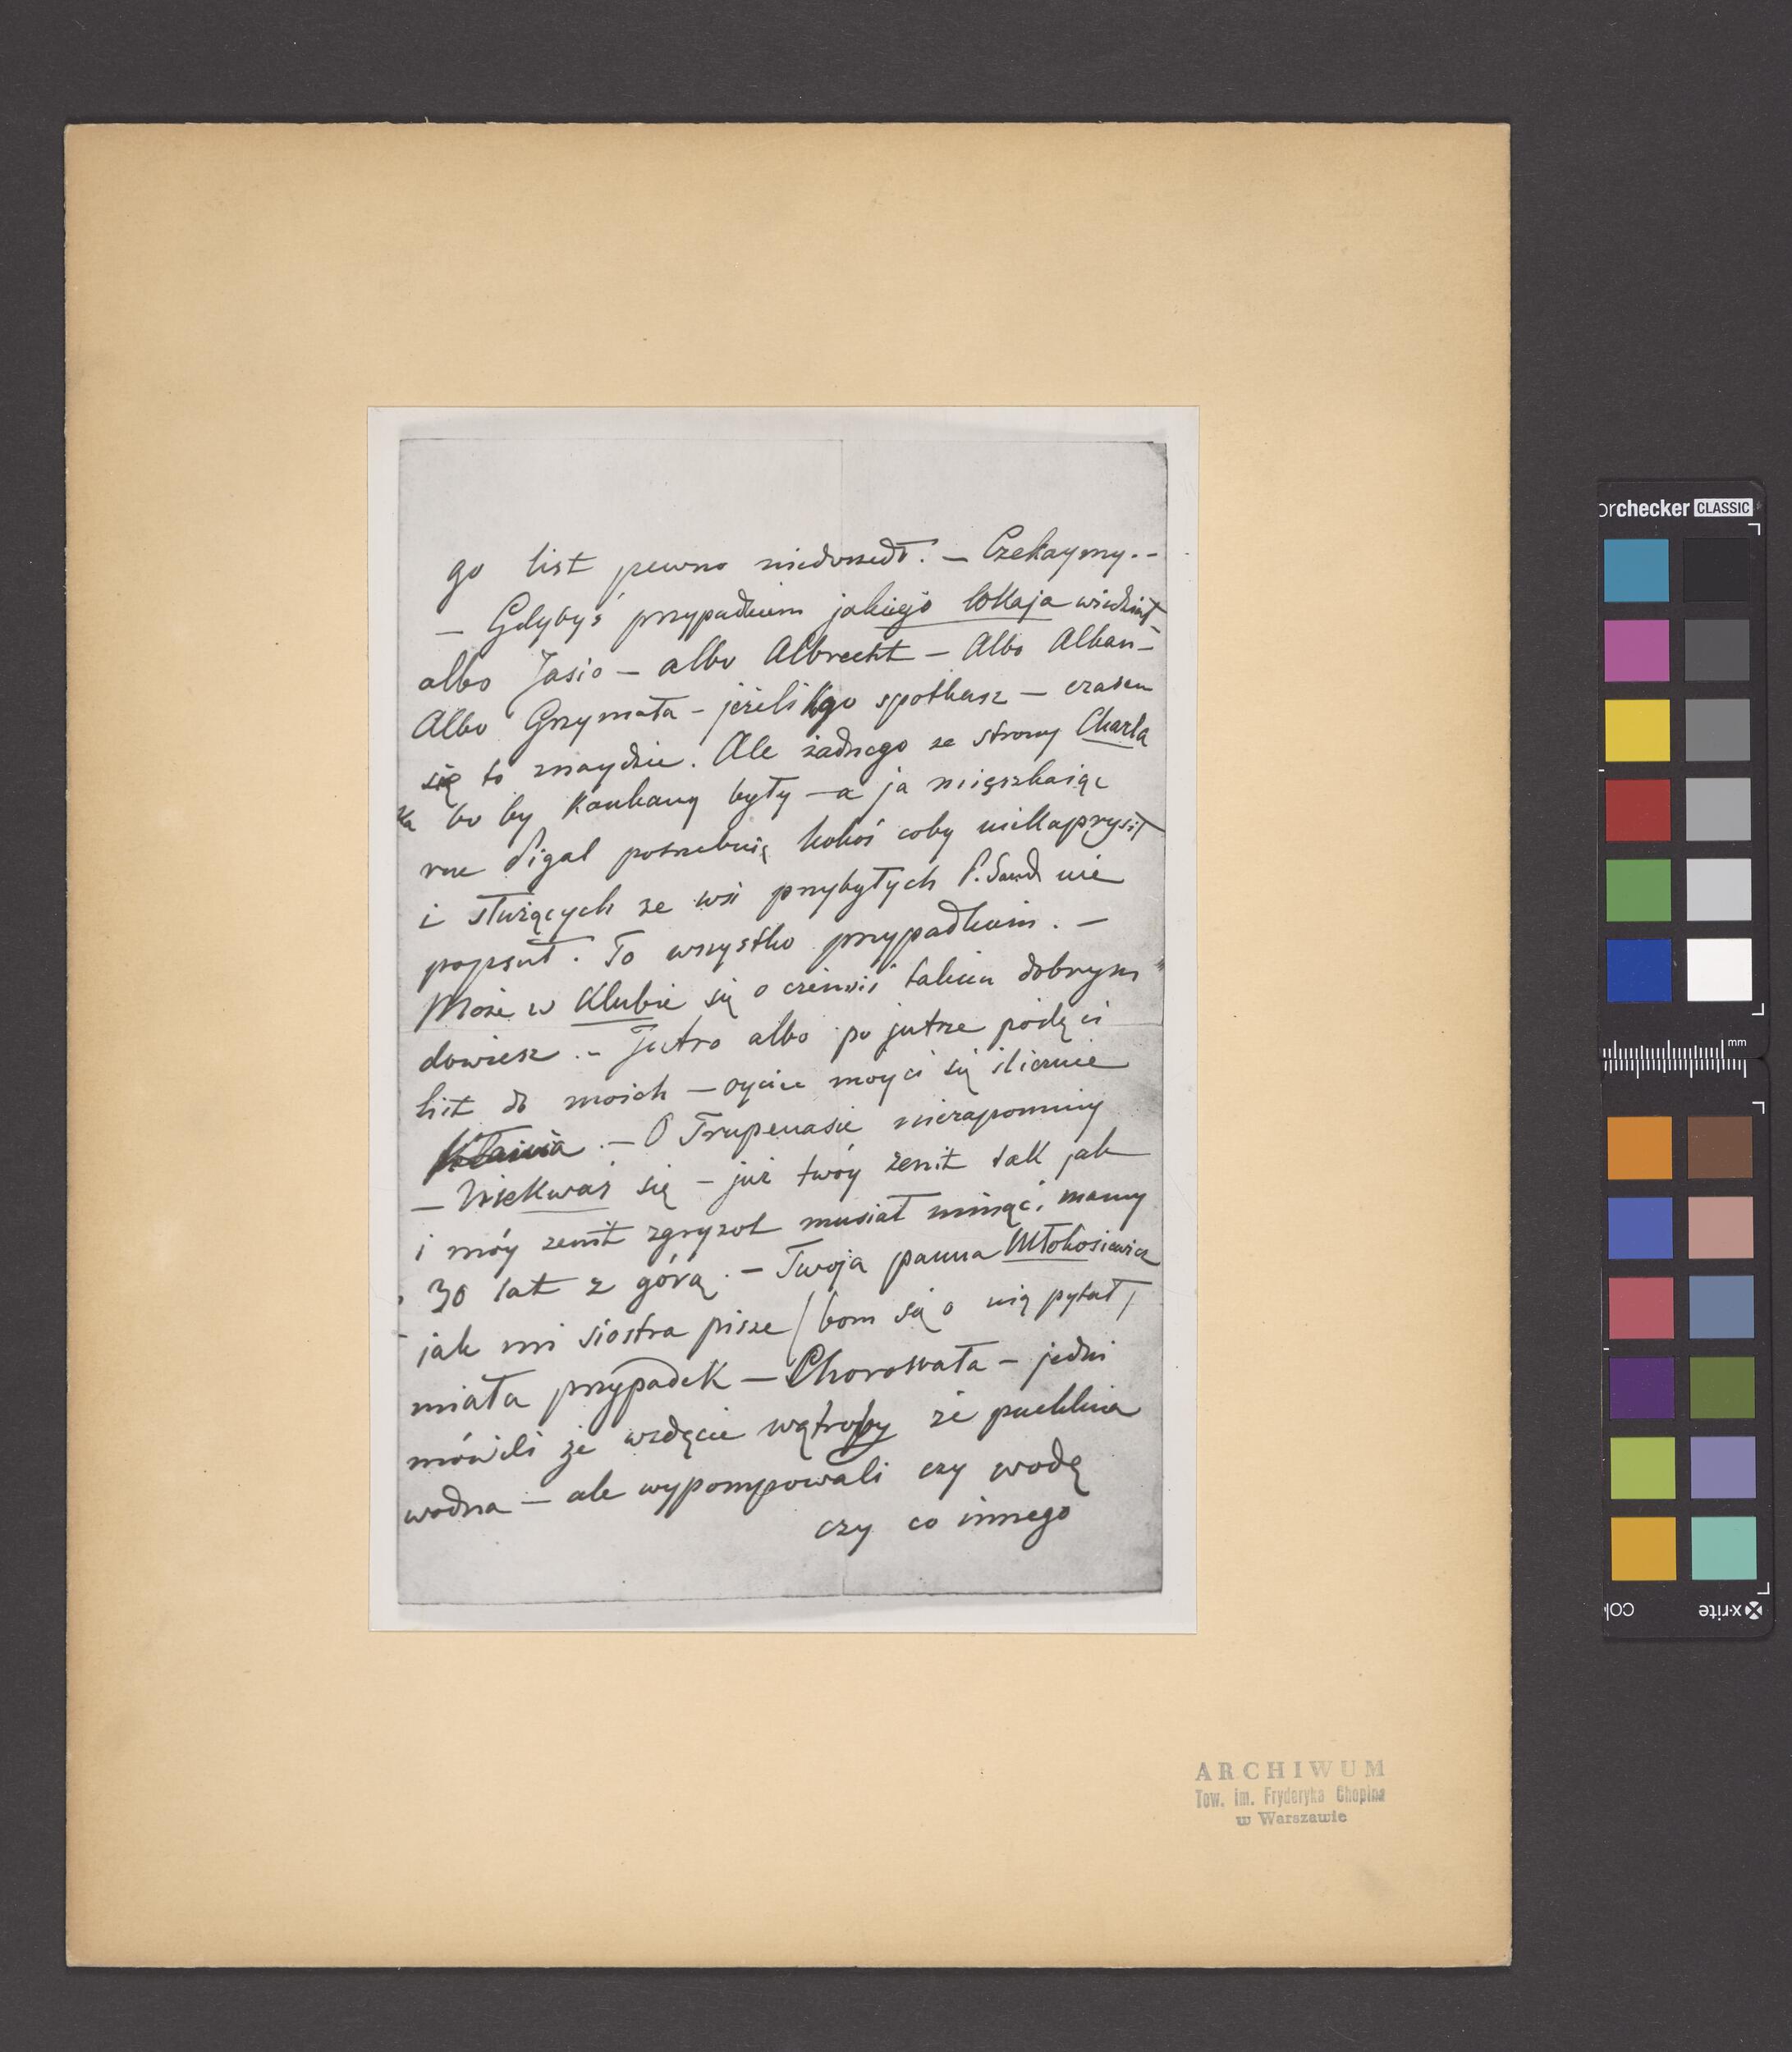 go list pewno niedoszedł. — Czekaymy. -
— Gdybyś przypadkiem jakiego lokaja wiedział -
albo Jasio — albo Albrecht — Albo Alban -
Albo Grzymała - jeżeli go spotkasz — czasem
się to znaydzie. Ale żadnego ze strony Charla
bo by Kankany były — a ja mięszkaiąc
rue Pigal potrzebuię kokoś coby niekaprysił
i służących ze wsi przybyłych P. Sand nie
popsuł. To wszystko przypadkiem. —
Może w Klubie się o czémsiś takim dobrym
dowiesz. - Jutro albo po jutrze pódę ci
list do moich — oyciec moy ci się ślicznie
Kłania. — O Trupenasie niezapominay
— Niekwaś się — już twóy zenit tak jak
i móy zenit zgryzot musiał minąć, mamy
30 lat z górą. — Twoja panna Młokosiewicz
jak mi siostra pisze / bom się o nią pytał /
miała przypadek — Chorowała — jedni
mówili że wzdęcie wątroby że puchlina
wodna — ale wypompowali czy wodę
czy co innego
ARCHIWUM
Tow. im. Fryderyka Chopina
w Warszawie
orchecker CLASSIC
mm
x-rite